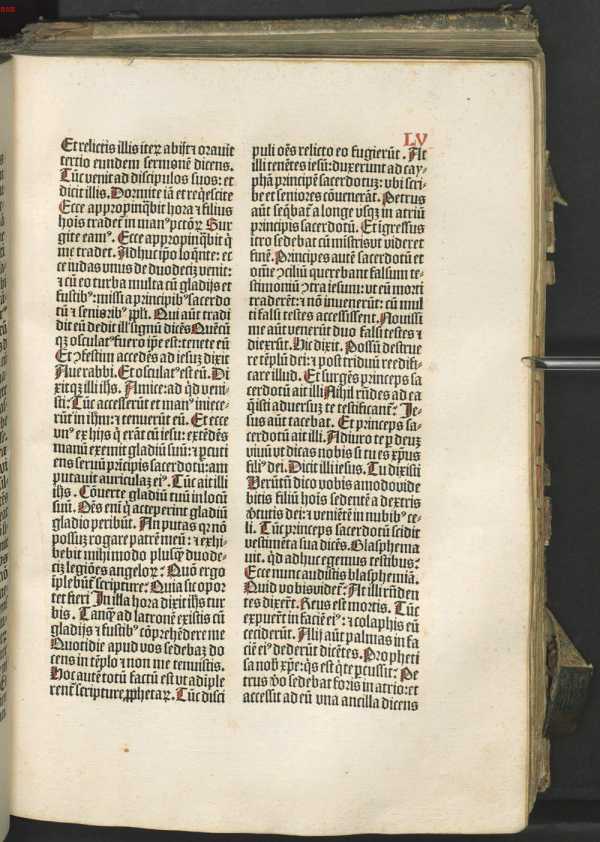 LV
Et relictis illis iteꝝ abijt ⁊ orauit
tertio eundem sermonē dicens.
Tūc venit ad discipulos suos: et
dicit illis. Dormite iā et reqͥescite
Ecce appropinqͣbit hora ⁊ filius
hoīs tradet̄ in manꝰ pctōꝝ Sur
gite eamꝰ. Ecce appropinqͣbit qͥ
me tradet. Adhuc ip̄o loq̄nte: et
ce iudas vnus de duodecīz venit:
⁊ cū eo turba multa cū gladijs et
fustibꝰ: missi a principibꝰ sacerdo
tū ⁊ senioribꝰ ppl̄i. Qui aūt tradi
dit eū dedit illꝭ signū dicēs Quēcū
qꝫ osculatꝰ fuero ip̄e est: tenete eū
Et ꝯfestim accedēs ad iesuꝫ dixit
Aue rabbi. Et osculatꝰ est eū. Di
xitqꝫ illi ih̄s. Amice: ad qͥd veni-
sti: Tūc accesserūt et manꝰ iniece-
rūt in ih̄m: ⁊ tenuerūt eū. Et ecce
vnꝰ ex hijs qͥ erāt cū iesu: extēdēs
manū exemit gladiū suū: ⁊ ꝑcuti
ens seruū pͥncipis sacerdotū: am
putauit auriculaꝫ eiꝰ. Tūc ait illi
ih̄s. Cōuerte gladiū tuū in locū
suū. Oēs eni qͥ acceperint gladiū
gladio peribūt. An putas qꝛ nō
possuꝫ rogare patrē meū: ⁊ exhi-
bebit mihi modo plusqͣꝫ duode-
cīz legiōes angeloꝝ? Quō ergo
iplebūt̄ scripture: Quia sic opor
tet fieri. In illa hora dixit ih̄s tur
bis. Tanqͣ ad latronē existis cū
gladijs ⁊ fustibꝰ cōprehēdere me
Quotidie apud vos sedebaꝫ do
cens in tēplo ⁊ non me tenuistis.
Hoc autē totū factū est vt adiple
rent̄ scripture ꝓphetaꝝ. Tūc disci
puli oēs relicto eo fugierūt. At
illi tenētes iesū: duxerunt ad cay-
phā principē sacerdotuꝫ: vbi scri-
be et seniores cōuenerāt. Petrus
aūt seq̄bat̄ a longe vsqꝫ in atriū
principis sacerdotū. Et igressus
itro sedebat cū mīstris vt videret
finē. Principes autē sacerdotū et
om̄e ꝯciliū querebant falsum te-
stimoniū ꝯtra iesum: vt eū morti
traderēt: ⁊ nō inuenerūt: cū mul
ti falsi testes accessissent. Nouissi
me aūt venerūt duo falsi testes ⁊
dixerūt. Hic dixit. Possū destrue
re tēplū dei: ⁊ post triduū reedifi-
care illud. Et surgēs princeps sa
cerdotū ait illi Nihil rn̄des ad ea
q̄ isti aduersuꝫ te testificant̄? Je-
sus aūt tacebat. Et princeps sa-
cerdotū ait illi. Adiuro te ꝑ deuꝫ
viuū vt dicas nobis si tu es xp̄us
filiꝰ dei. Dicit illi iesus. Tu dixisti
Verūtn̄ dico vobis amodo vide
bitis filiū hoīs sedentē a dextris
ꝟtutis dei: ⁊ veniētē in nubibꝰ ce-
li. Tūc princeps sacerdotū scidit
vestimēta sua dicēs. Blasphema
uit. qͥd adhuc egemus testibus?
Ecce nunc audistis blasphemiā.
Quid vobis videt̄: At illi rn̄den
tes dixerūt. Reus est mortis. Tūc
expuerūt in faciē eiꝰ: ⁊ colaphis eū
ceciderūt. Alij aūt palmas in fa
ciē eiꝰ dederūt dicētes. Propheti
sa nob̄ xp̄e: qͥs est qͥ te ꝑcussit? Pe
trus ꝟo sedebat foris in atrio: et
accessit ad eū vna ancilla dicens